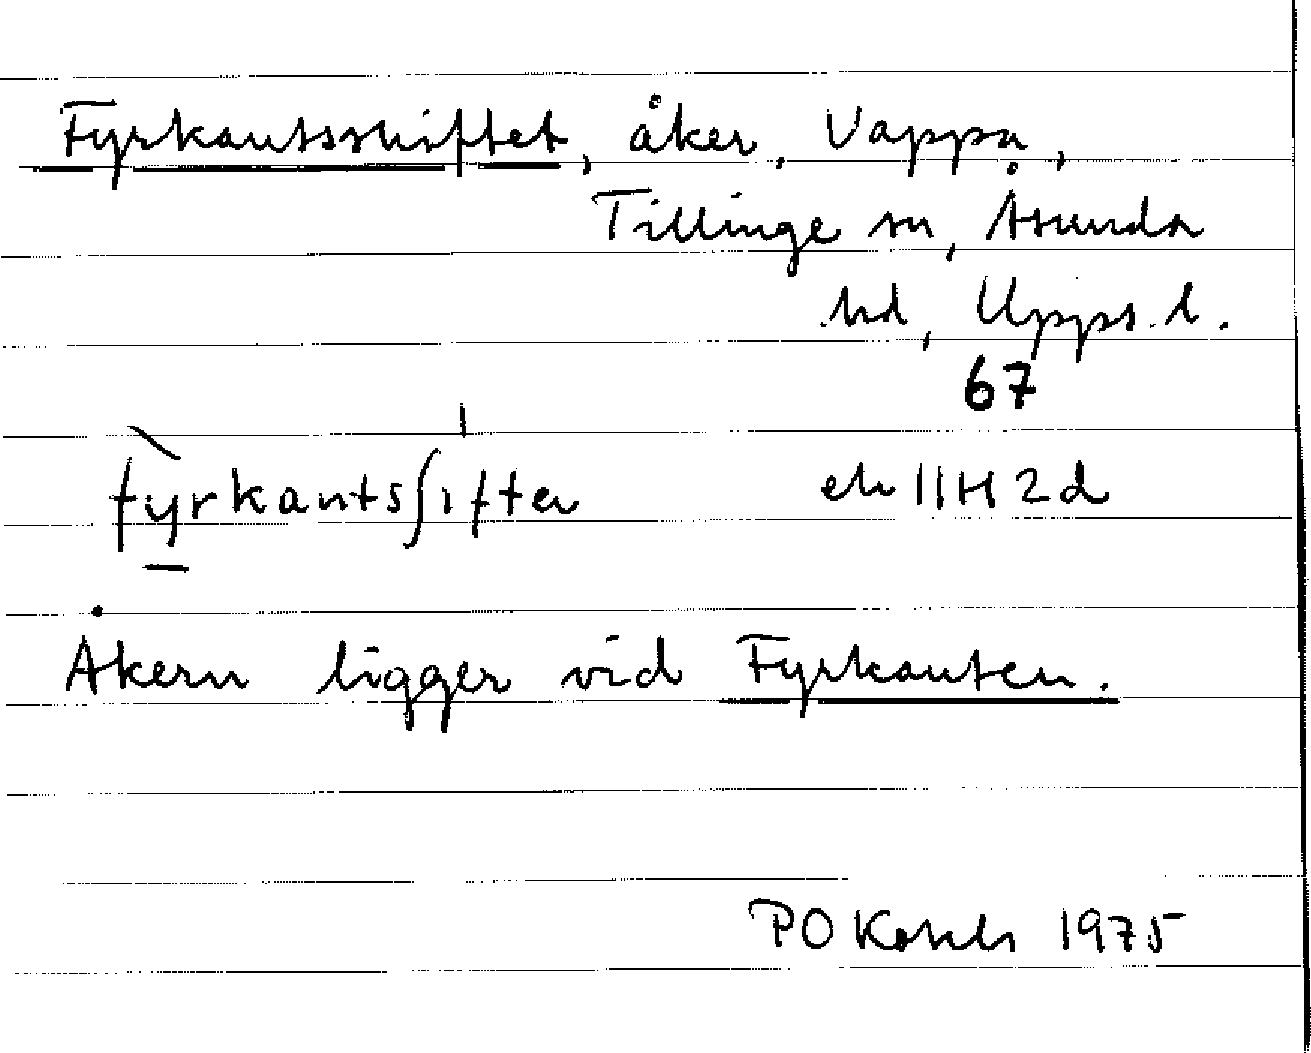 Fyrkantsskiftet, åker, Vappa,
Tillinge sn, Åsunda
hd, Upps. l.
67
fy̠rkantsʃifter ek 11H2d
Åkern ligger vid Fyrkanten.
PO 1975